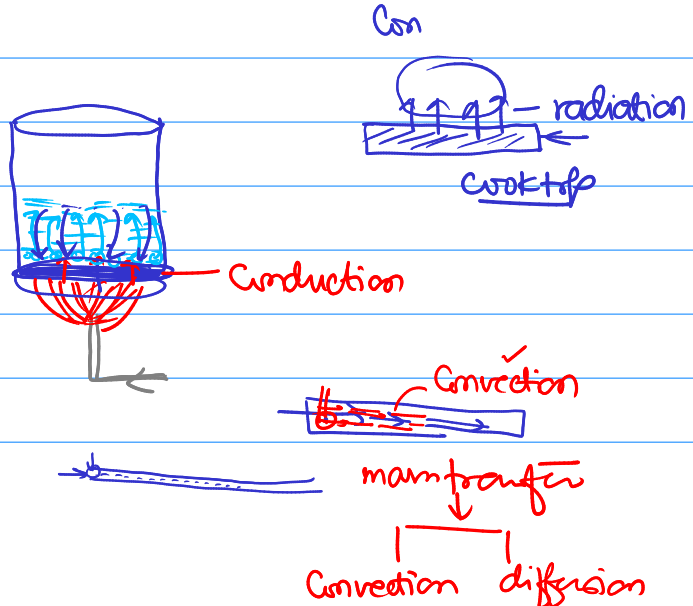 Con
radiation
cooktop
Conduction
Convection
mass transfer
Convection diffusion